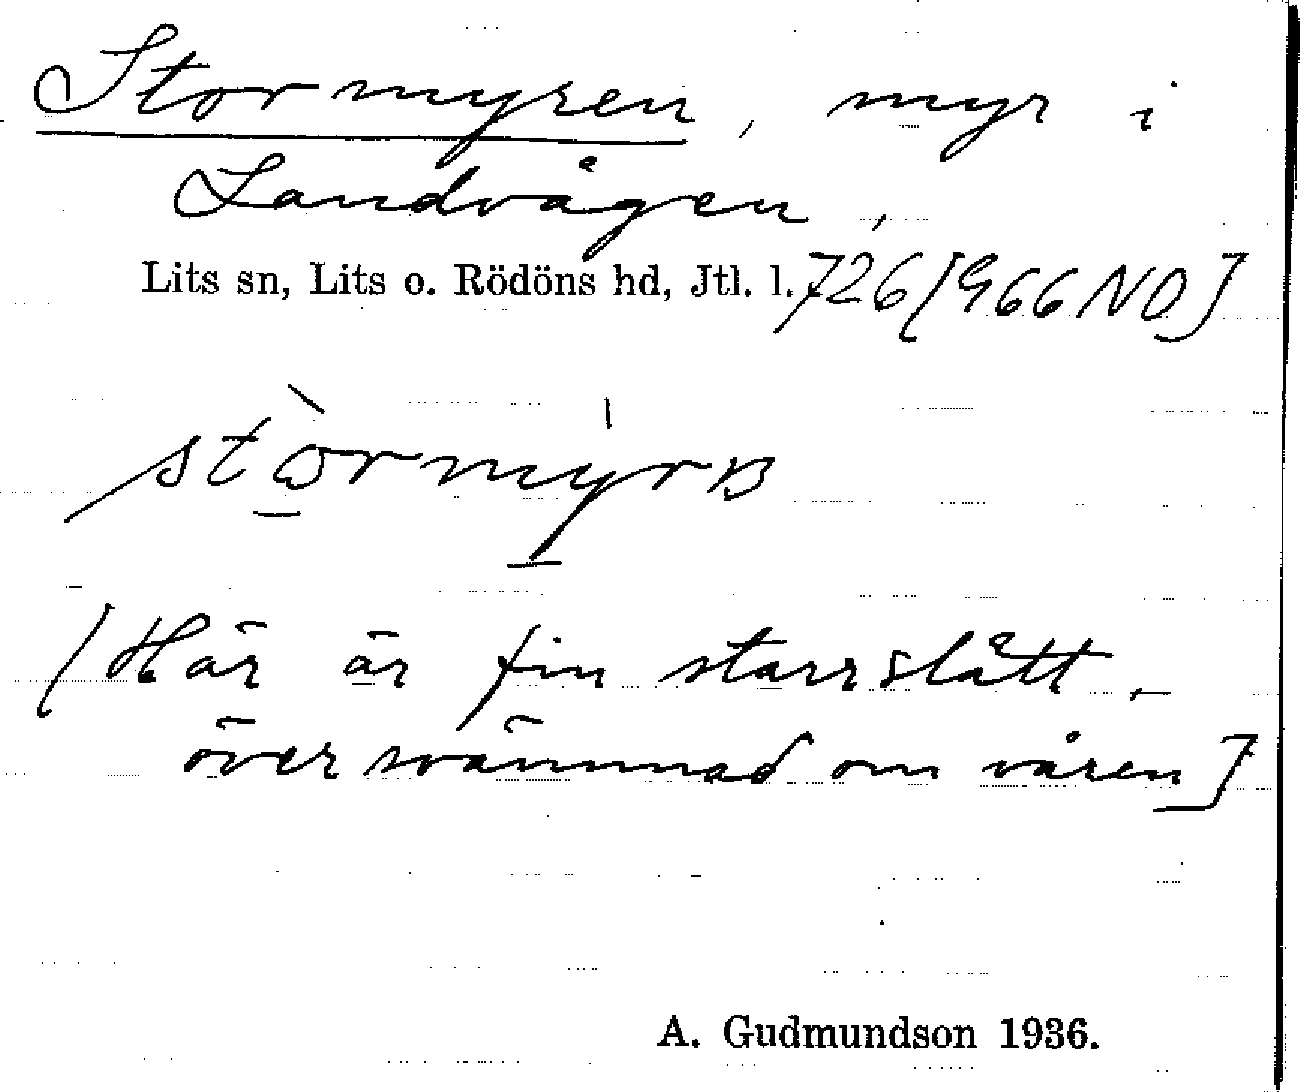 Stormyren, myr i
Landvågen,
Lits sn, Lits o. Rödöns hd, Jtl. l. 726 [966 NO]
[Här är fin starrslått,
översvämmad om våren]
A. Gudmundson 1936.